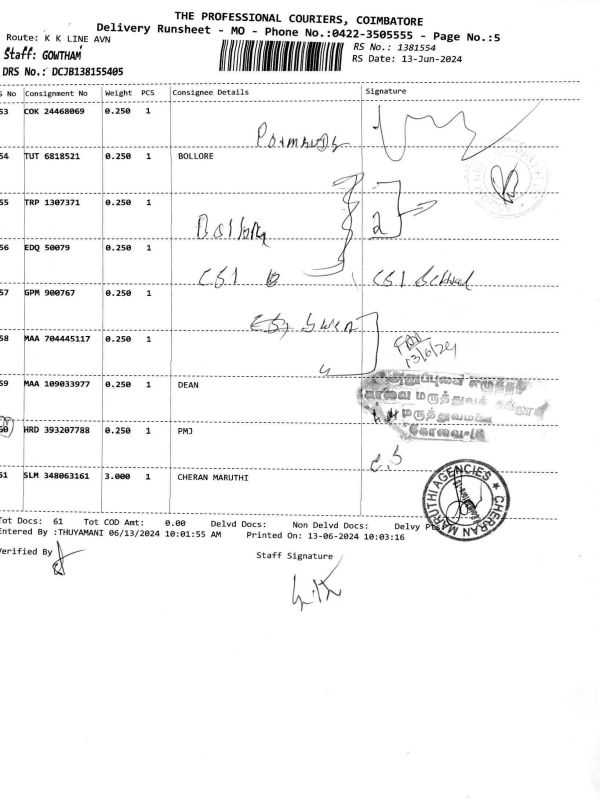 THE PROFESSIONAL COURIERS, COIMBATORE
Delivery Runsheet - MO - Phone No.:0422-3505555 - Page No.:5
Route: K K LINE AVN
RS No.: 1381554
Staff: GOWTHAM
RS Date: 13-Jun-2024
DRS No.: DCJB138155405
S No Consignment No Weight PCS Consignee Details Signature
53 COK 24468069 0.250 1
54 TUT 6818521 0.250 1 BOLLORE
55 TRP 1307371 0.250 1
2
56 EDQ 50079 0.250 1
CSI CSI School
57 GPM 900767 0.250 1
58 MAA 704445117 0.250 1
13/6/24
59 MAA 109033977 0.250 1 DEAN
கோவை மருத்துவக் கல்லூரி
மருத்துவமனை
கோவை-18
60 HRD 393207788 0.250 1 PMJ
61 SLM 348063161 3.000 1 CHERAN MARUTHI
CHERRAN MARUTHI AGENCIES
Tot Docs: 61 Tot COD Amt: 0.00 Delvd Docs: Non Delvd Docs: Delvy Pts
Entered By :THUYAMANI 06/13/2024 10:01:55 AM Printed On: 13-06-2024 10:03:16
Verified By
Staff Signature